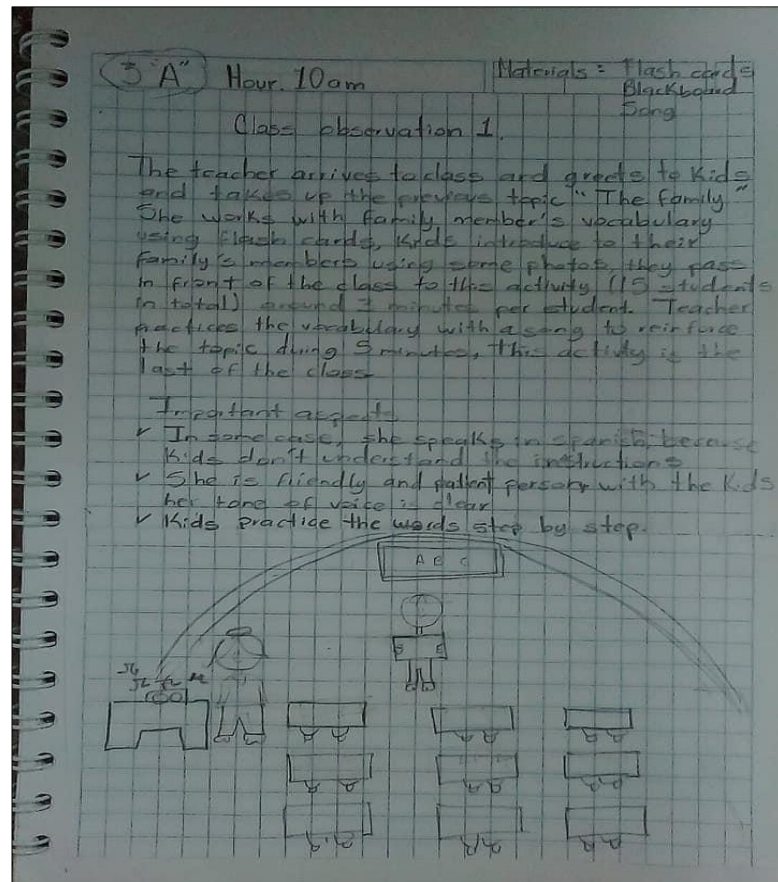 3 "A" Hour. 10am Materials: Flash cards
Blackboard
Song
Class observation 1.
The teacher arrives to class and greets to Kids
and takes up the previous topic "The family"
She works with family member's vocabulary
using flash cards, Kids introduce to their
family's members using some photos, they pass
in front of the class to this activity (15 students
in total) around minutes per student. Teacher
practices the vocabulary with a song to reinforce
the topic during 5 minutes, this activity is the
last of the class
Important aspects
✓ In some case, she speaks in spanish, because
Kids don't understand the instructions
✓ She is friendly and patient person with the Kids
her tone of voice is clear
✓ Kids practice the words step by step.
A B C